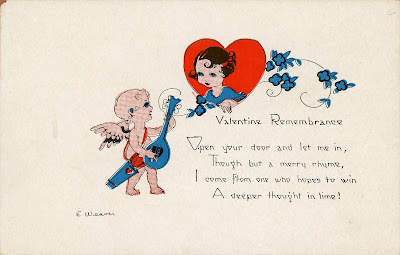 Valentine Remembrance
Open your door and let me in,
Though but a merry rhyme,
I come from one who hopes to win
A deeper thought in time!
E Weaver